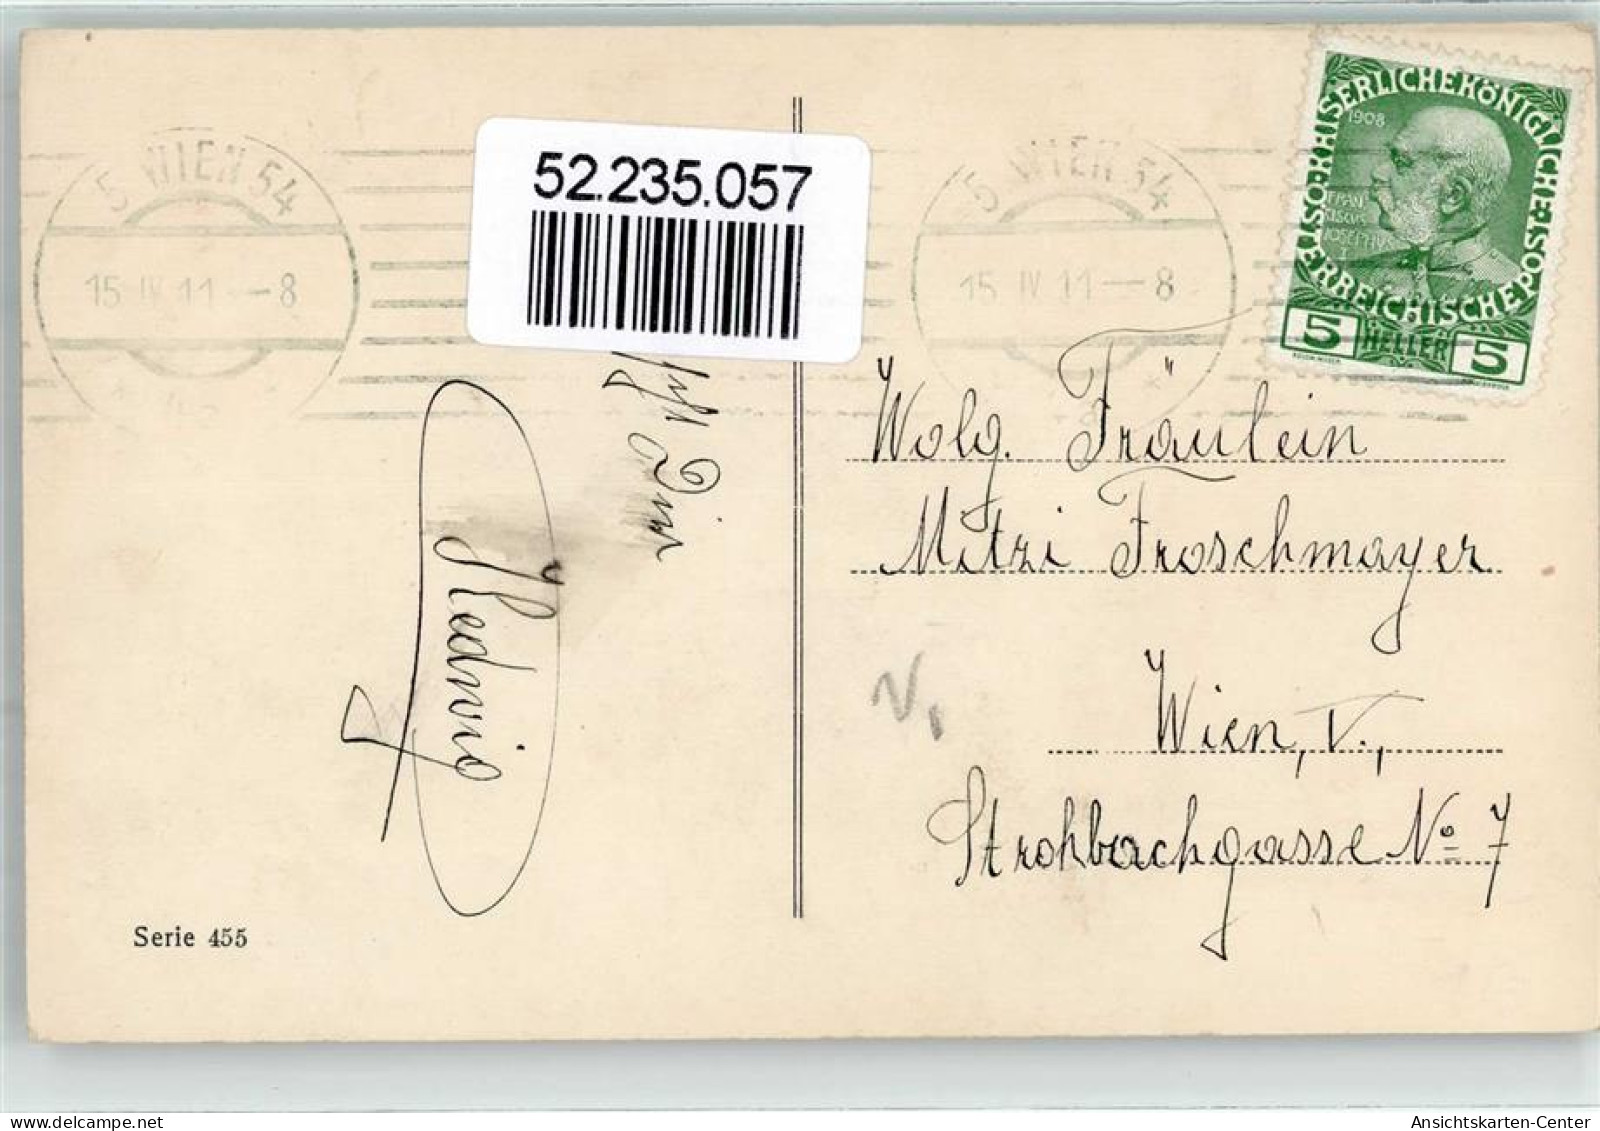 5 WIEN 54
15 IV 11 - 8
52.235.057
5 WIEN 54
15 IV 11 - 8
KAISERLICHE KÖNIGLICHE ÖSTERREICHISCHE POST
1908
FRAN
CISCVS
JOSEPHVS
5 HELLER 5
Dir
Hedwig
Wolg. Fräulein
Mitzi Froschmayer
Wien, V.,
Strohbachgasse No 7
V,
Serie 455
Ansichtskarten-Center